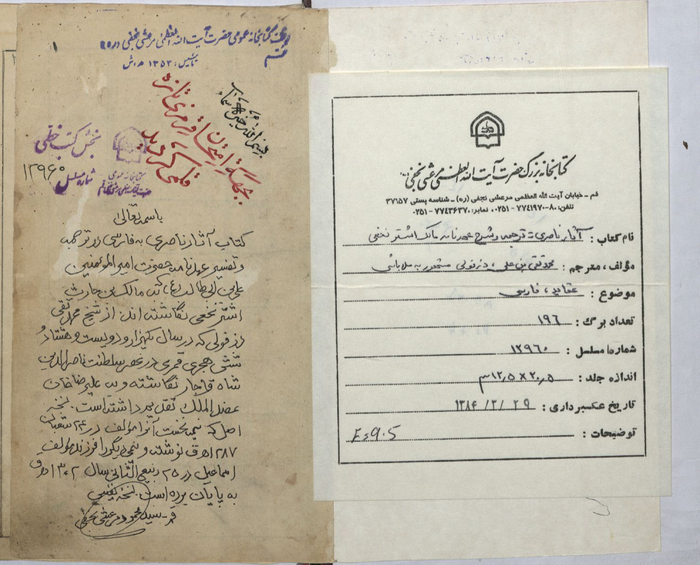 کتابخانه عمومی حضرت آیت الله العظمی مرعشی نجفی
قم
تأسیس: ۱۳۵۳ ه ش
بخش کتب خطی
شماره مسلسل
۱۲۹۶۰
باسمه تعالی
کتاب آثار ناصری به فارسی در ترجمه
و تفسیر عهدنامه حضرت امیرالمؤمنین
علی بن ابی طالب (ع) به مالک بن حارث
اشتر نخعی نگاشته اند از شیخ محمد تقی
دزفولی که در سال یکهزار و دویست و هشتاد و
شش هجری قمری در عهد سلطنت ناصرالدین
شاه قاجار نگاشته و به علیرضاخان
عضدالملک تقدیم داشته است. نسخه
اصل که نیمه نخست آن را مؤلف در ۲۴ شعبان
۱۲۸۷ ه ق نوشته و نیمه دیگر را فرزند مؤلف
اسماعیل در ۲۵ ربیع الثانی سال ۱۳۰۲ ه ق
به پایان برده است. نسخه نفیس
سید محمود مرعشی نجفی
کتابخانه بزرگ حضرت آیت الله العظمی مرعشی نجفی
قم - خیابان آیت الله العظمی مرعشی نجفی (ره) - شناسه پستی ۳۷۱۵۷
تلفن: ۸۰-۷۷۴۱۹۷۰-۰۲۵۱ نمابر: ۷۷۴۳۶۳۷-۰۲۵۱
نام کتاب: آثار ناصری = ترجمه و شرح عهدنامه مالک اشتر نخعی
مؤلف، مترجم: محمدتقی بن علی، دزفولی مشهور به
موضوع: عقاید، فارسی
تعداد برگ: ۱۹۶
شماره مسلسل: ۱۲۹۶۰
اندازه جلد: ۱۲٫۵ × ۲۰٫۵ سم
تاریخ عکسبرداری: ۱۳۸۴/۲/۲۹
توضیحات: